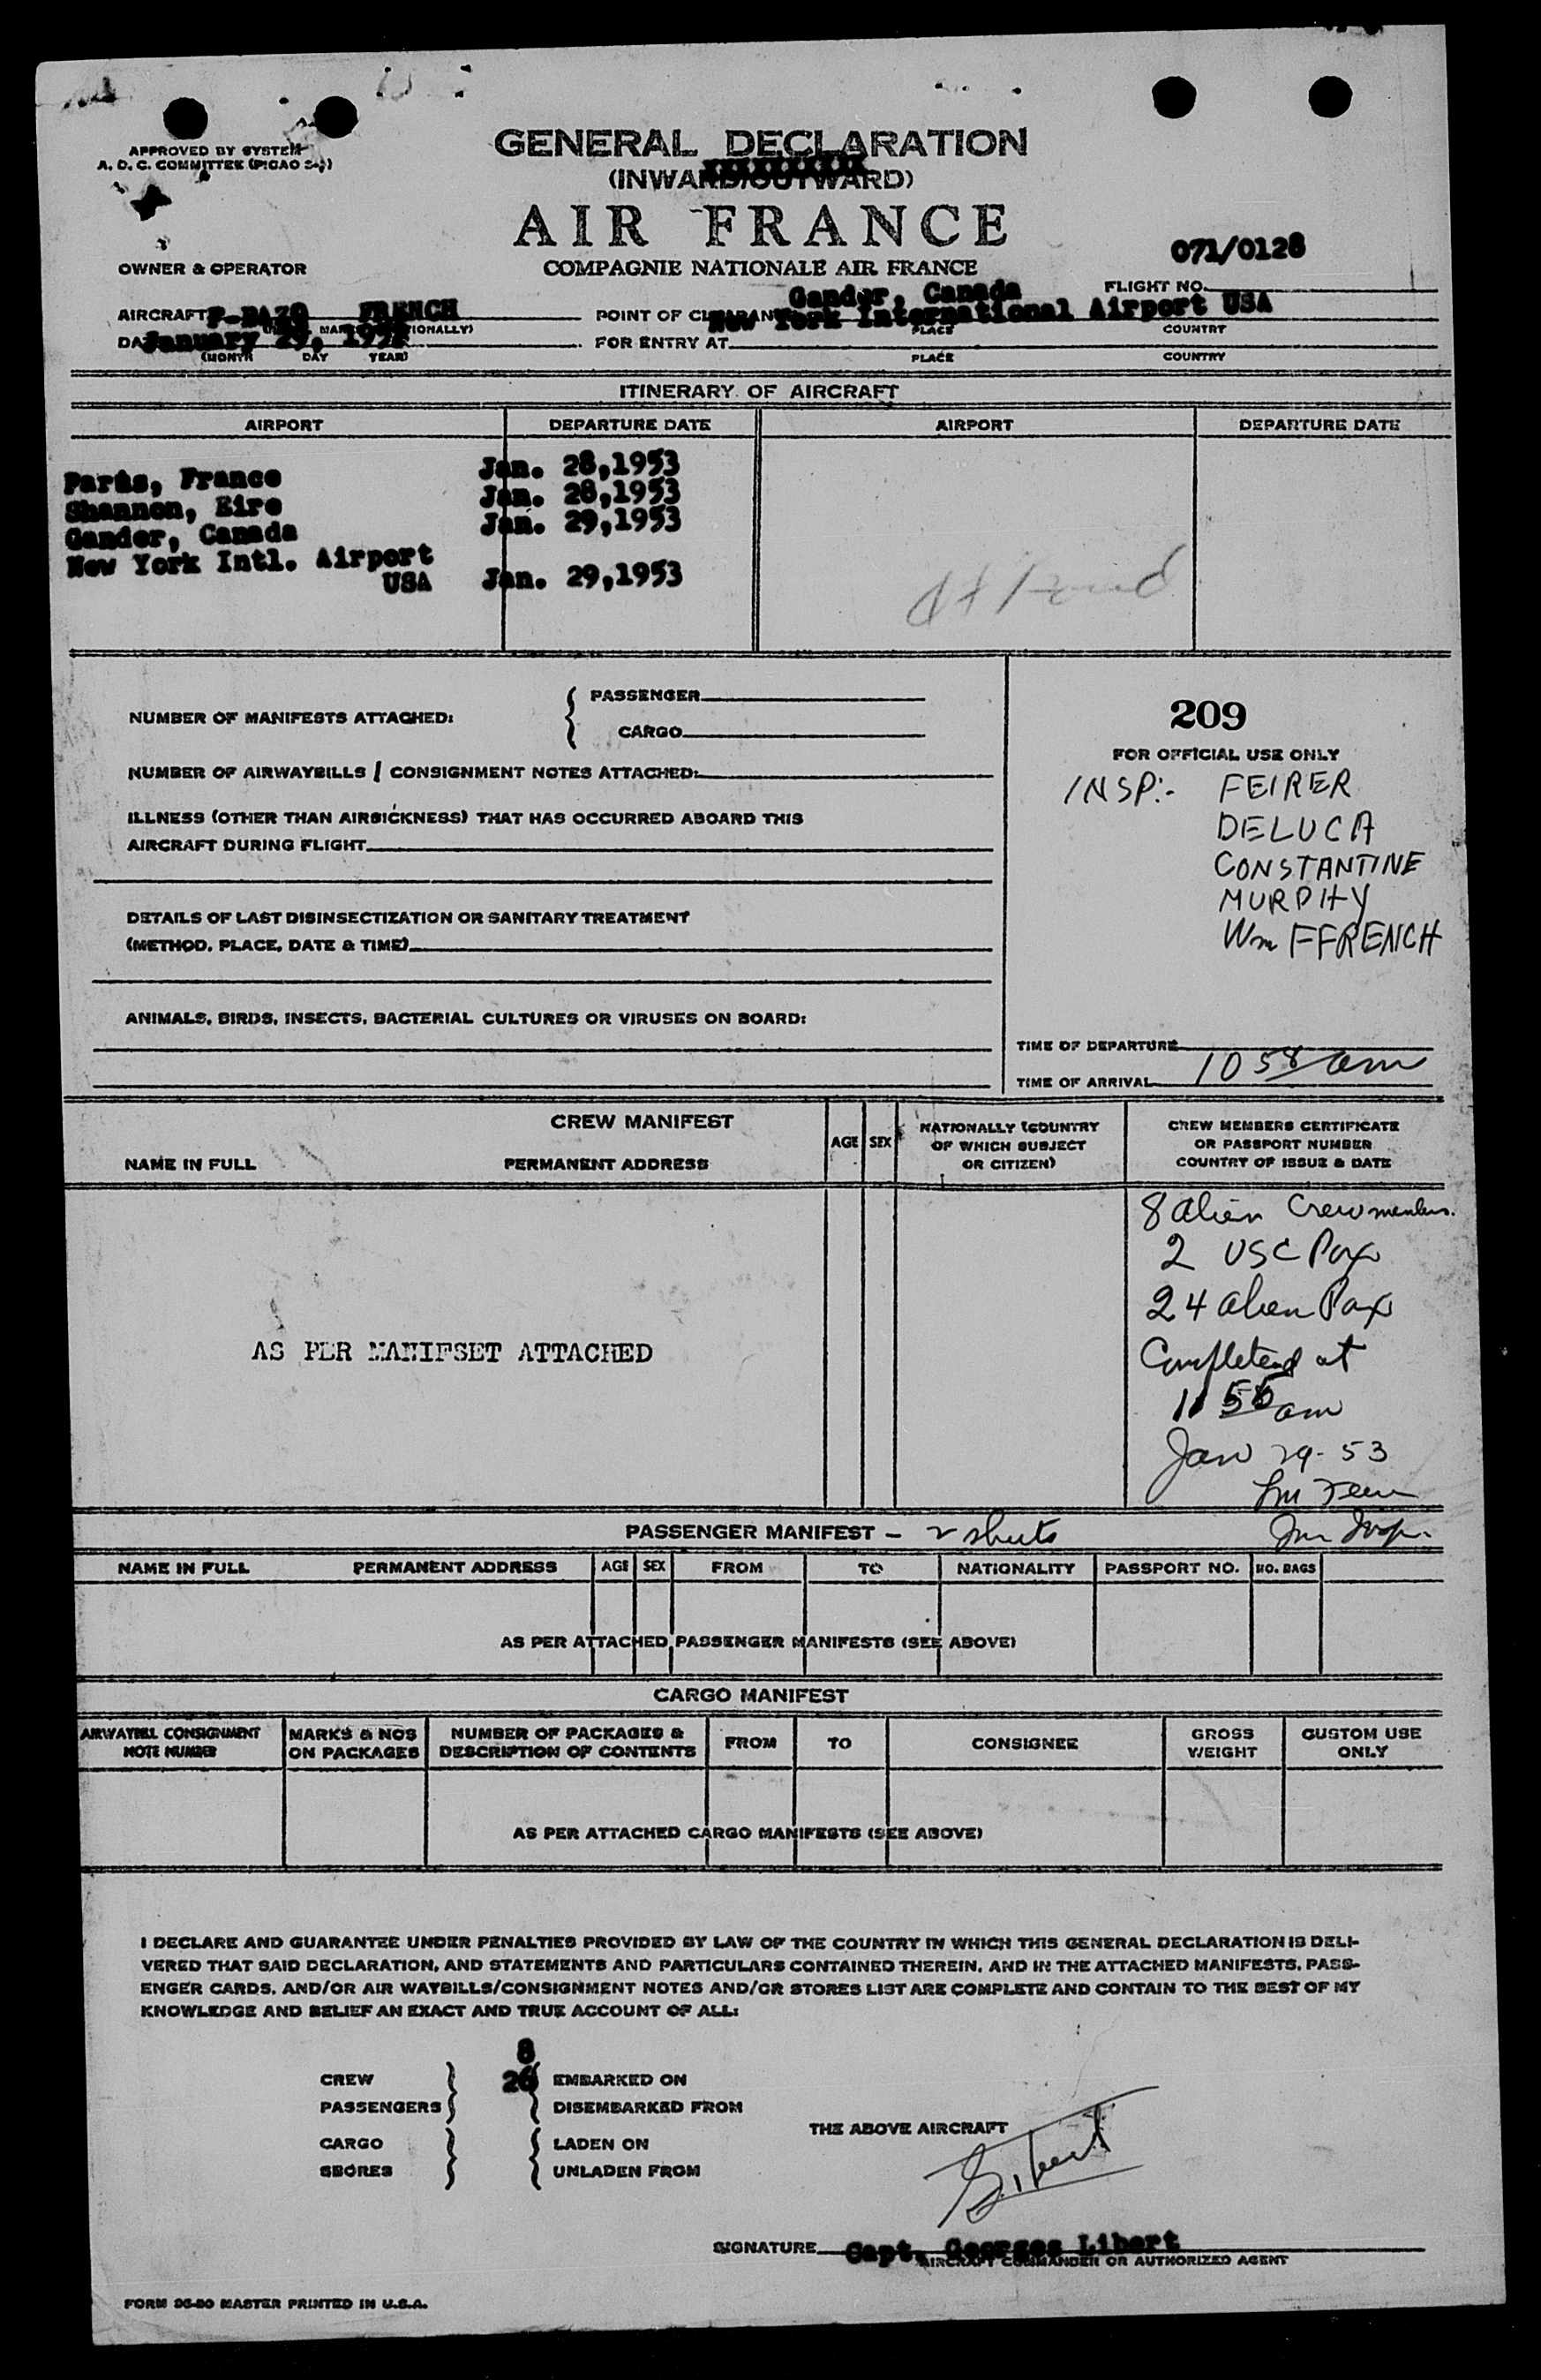 APPROVED BY SYSTEM
A. D. C. COMMITTEE (PICAO
GENERAL DECLARATION
(INWARD/OUTWARD)
AIR FRANCE
COMPAGNIE NATIONALE AIR FRANCE
071/0128
OWNER & OPERATOR
FLIGHT NO.
Gander, Canada
AIRCRAFT FRENCH POINT OF
New York International Airport USA
PLACE COUNTRY
January 29,
(MONTH DAY YEAR)
FOR ENTRY AT
PLACE COUNTRY
ITINERARY OF AIRCRAFT
AIRPORT DEPARTURE DATE AIRPORT DEPARTURE DATE
Paris, France Jan. 28,1953
Shannon, Eire Jan. 28,1953
Gander, Canada Jan. 29,1953
New York Intl. Airport
USA Jan. 29,1953
NUMBER OF MANIFESTS ATTACHED: { PASSENGER
CARGO
NUMBER OF AIRWAYBILLS / CONSIGNMENT NOTES ATTACHED:
ILLNESS (OTHER THAN AIRSICKNESS) THAT HAS OCCURRED ABOARD THIS
AIRCRAFT DURING FLIGHT
DETAILS OF LAST DISINSECTIZATION OR SANITARY TREATMENT
(METHOD, PLACE, DATE & TIME)
ANIMALS, BIRDS, INSECTS, BACTERIAL CULTURES OR VIRUSES ON BOARD:
209
FOR OFFICIAL USE ONLY
INSP:- FEIRER
DELUCA
CONSTANTINE
MURPHY
Wm FFRENCH
TIME OF DEPARTURE
TIME OF ARRIVAL 10 58 am
CREW MANIFEST
NAME IN FULL PERMANENT ADDRESS
AGE SEX
NATIONALLY (COUNTRY
OF WHICH SUBJECT
OR CITIZEN)
CREW MEMBERS CERTIFICATE
OR PASSPORT NUMBER
COUNTRY OF ISSUE & DATE
AS PER MANIFSET ATTACHED
8 alien Crewmembers.
2 USC Pax
24 alien Pax
Completed at
11 55 am
Jan 29-53
PASSENGER MANIFEST – 2 sheets
NAME IN FULL PERMANENT ADDRESS AGE SEX FROM TO NATIONALITY PASSPORT NO. NO. BAGS
AS PER ATTACHED PASSENGER MANIFESTS (SEE ABOVE)
CARGO MANIFEST
AIRWAYBILL CONSIGNMENT
NOTE NUMBER
MARKS & NOS
ON PACKAGES
NUMBER OF PACKAGES &
DESCRIPTION OF CONTENTS
FROM TO CONSIGNEE
GROSS
WEIGHT
CUSTOM USE
ONLY
AS PER ATTACHED CARGO MANIFESTS (SEE ABOVE)
I DECLARE AND GUARANTEE UNDER PENALTIES PROVIDED BY LAW OF THE COUNTRY IN WHICH THIS GENERAL DECLARATION IS DELI-
VERED THAT SAID DECLARATION, AND STATEMENTS AND PARTICULARS CONTAINED THEREIN, AND IN THE ATTACHED MANIFESTS, PASS-
ENGER CARDS, AND/OR AIR WAYBILLS/CONSIGNMENT NOTES AND/OR STORES LIST ARE COMPLETE AND CONTAIN TO THE BEST OF MY
KNOWLEDGE AND BELIEF AN EXACT AND TRUE ACCOUNT OF ALL:
8
CREW 26 EMBARKED ON
PASSENGERS DISEMBARKED FROM
THE ABOVE AIRCRAFT
CARGO LADEN ON
SBORES UNLADEN FROM
SIGNATURE Capt. Georges Libert
AIRCRAFT COMMANDER OR AUTHORIZED AGENT
FORM 96-80 MASTER PRINTED IN U.S.A.